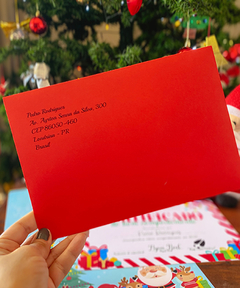 Pedro Rodrigues
Av. Ayrton Senna da Silva, 500
CEP 86050-460
Londrina - PR
Brasil
CERTIFICADO
Papai Noel